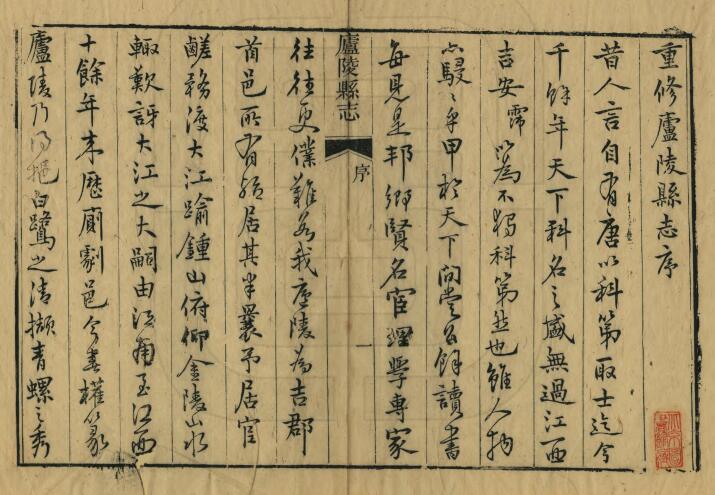 重修廬陵縣志序
昔人言自有唐以科第取士迄今
千餘年天下科名之盛無過江西
吉安霈以為不獨科第然也雖人物
亦駸〻乎甲於天下間嘗公餘讀書
每見是邦鄉賢名宦理學專家
廬陵縣志
序
一
往往更僕難數我廬陵為吉郡
首邑所有殆居其半曩予居官
鹺務渡大江踰鍾山俯仰金陵山水
輒歎訝大江之大嗣由江甫至江西
十餘年來歷廁劇邑今春權篆
廬陵乃得挹白鷺之清擷青螺之秀